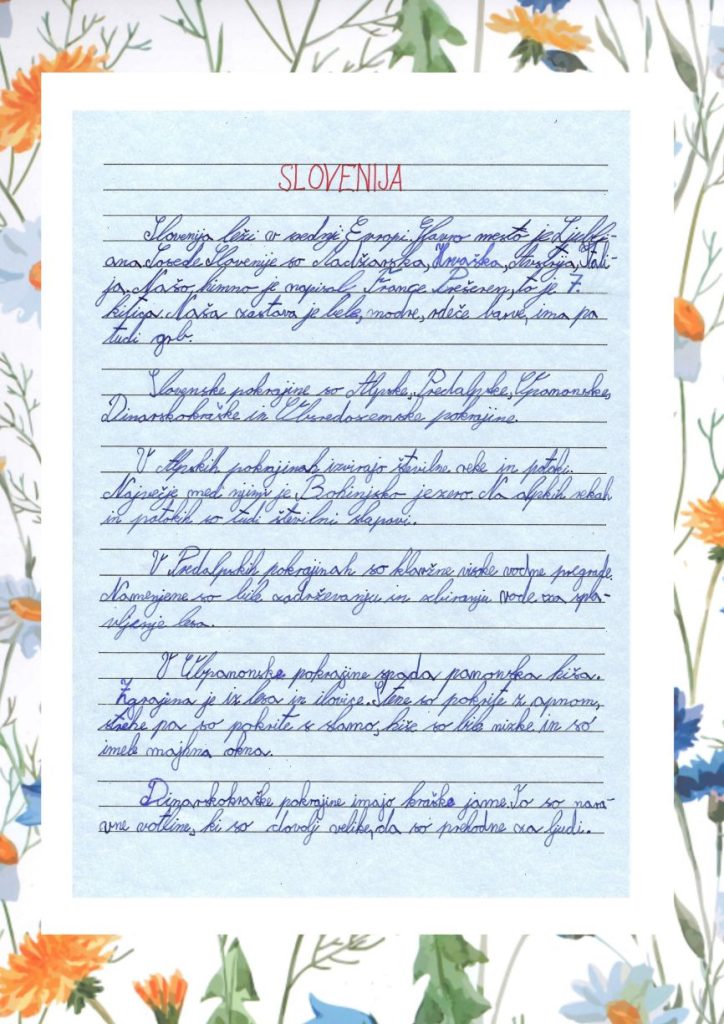 SLOVENIJA
Slovenija leži v srednji Evropi. Glavno mesto je Ljublj-
ana. Sosede Slovenije so Madžarska, Hrvaška, Avstrija, Itali-
ja. Našo himno je napisal France Prešeren, to je 7.
kitica. Naša zastava je bele, modre, rdeče barve, ima pa
tudi grb.
Slovenske pokrajine so Alpske, Predalpske, Obpanonske,
Dinarskokraške in Obsredozemske pokrajine.
V Alpskih pokrajinah izvirajo številne reke in potoki.
Največje med njimi je Bohinjsko jezero. Na alpskih rekah
in potokih so tudi številni slapovi.
V Predalpskih pokrajinah so klavžne visoke vodne pregrade.
Namenjene so bile zadrževanju in zbiranju vode za spla-
vljenje lesa.
V Obpanonske pokrajine spada panonska hiša.
Zgrajena je iz lesa in ilovice. Stene so pokrite z apnom,
strehe pa so pokrite s slamo, hiše so bile nizke in so
imele majhna okna.
Dinarskokraške pokrajine imajo kraške jame. To so nara-
vne votline, ki so dovolj velike, da so prehodne za ljudi.